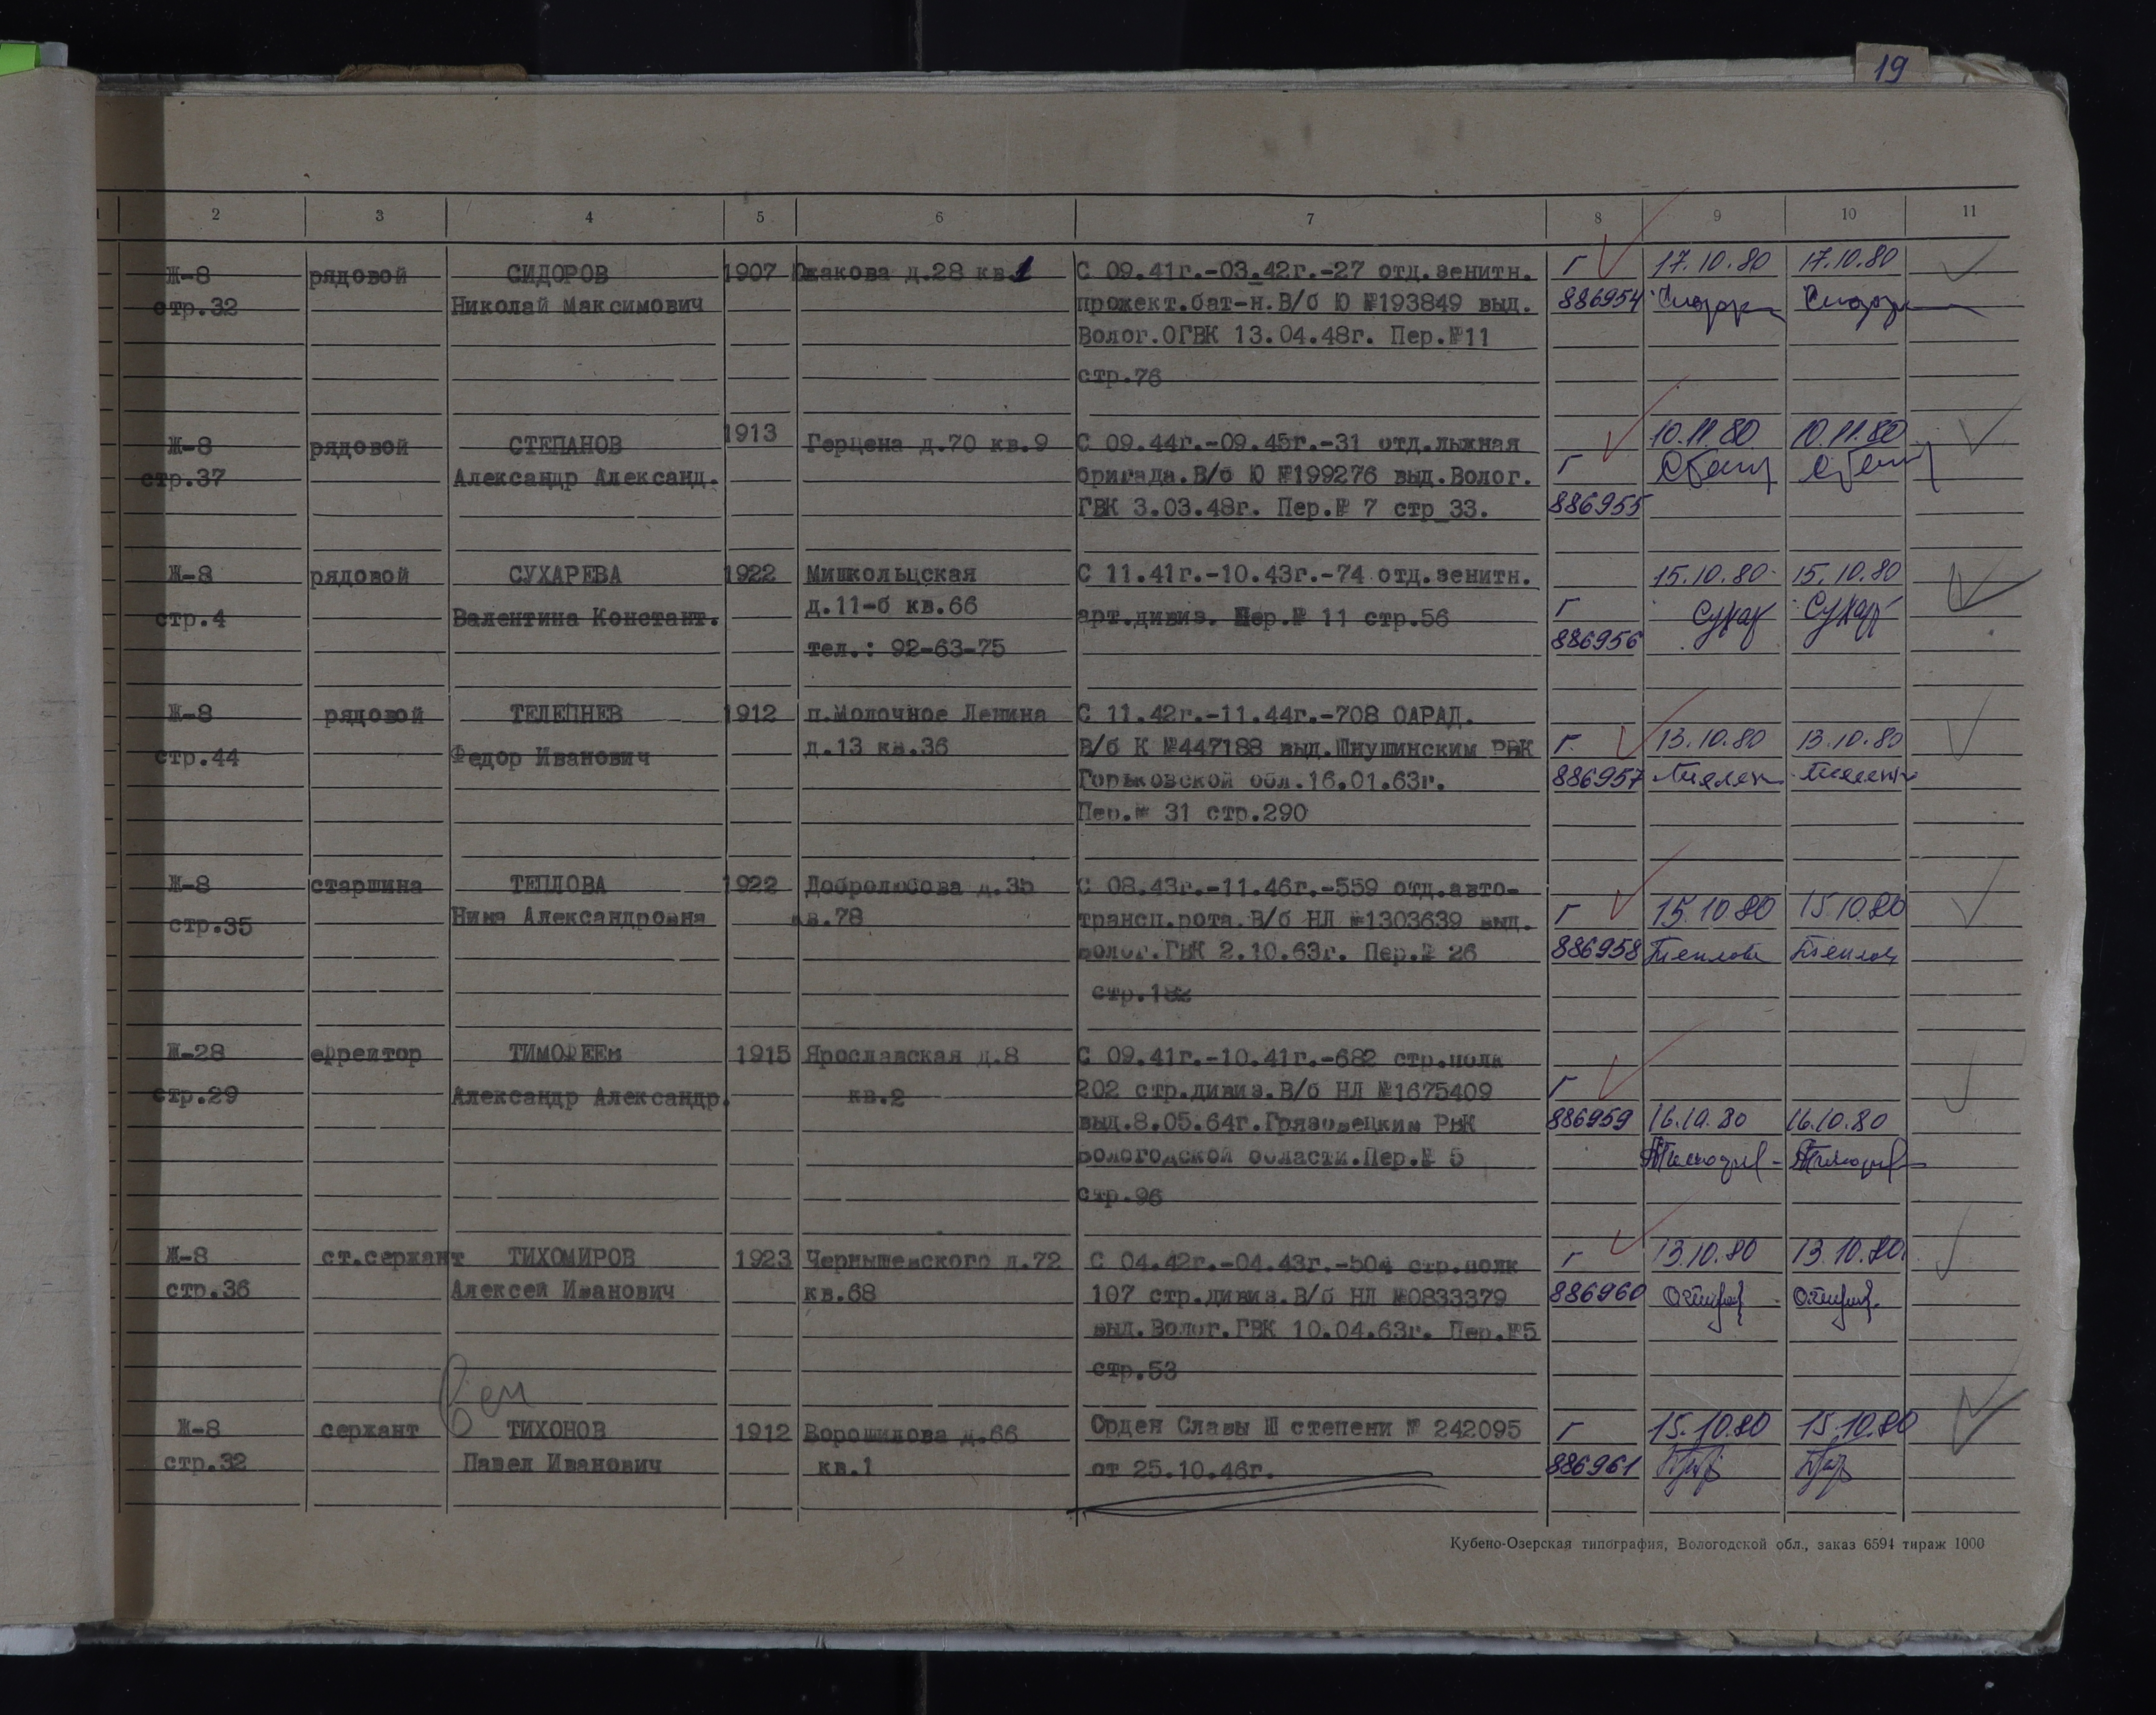 19
2 3 4 5 6 7 8 9 10 11
Ж-8 рядовой СИДОРОВ 1907 кв.1 С 09.41г.-03.42г.-27 отд.зенитн. Г 17.10.80 17.10.80
стр.32 Николай Максимович прожект.бат-н.В/б Ю №193849 выд. 886954
Волог.ОГВК 13.04.48г. Пер.№11
стр.76
Ж-8 рядовой СТЕПАНОВ 1913 Герцена д.70 кв.9 С 09.44г.-09.45г.-31 отд.лыжная Г 10.11.80 10.11.80
стр.37 Александр Александ. бригада.В/б Ю №199276 выд.Волог.
ГВК 3.03.48г. Пер.№ 7 стр_33. 886955
Ж-8 рядовой СУХАРЕВА 1922 Мишкольцская С 11.41г.-10.43г.-74 отд.зенитн. 15.10.80 15.10.80
стр.4 Валентина Констант. д.11-б кв.66 арт.дивиз. Пер.№ 11 стр.56 Г
тел.: 92-63-75 886956
Ж-8 рядовой ТЕЛЕПНЕВ 1912 п.Молочное Ленина С 11.42г.-11.44г.-708 ОАРАД.
стр.44 Федор Иванович д.13 кв.36 В/б К №447188 выд.Шнушинским РВК Г. 13.10.80 13.10.80
Горьковской обл.16.01.63г. 886957
Пер.№ 31 стр.290
Ж-8 старшина ТЕПЛОВА 1922 Добролюбова д.35 С 08.43г.-11.46г.-559 отд.авто-
стр.35 Нина Александровна кв.78 трансп.рота.В/б НЛ №1303639 выд. Г 15.10.80 15.10.80
Волог.ГВК 2.10.63г. Пер.№ 26 886958
стр.182
Ж-28 ефрейтор ТИМОФЕЕВ 1915 Ярославская д.8 С 09.41г.-10.41г.-682 стр.полк
стр.29 Александр Александр. кв.2 202 стр.дивиз.В/б НЛ №1675409 Г
выд.8.05.64г.Грязовецким РВК 886959 16.10.80 16.10.80
Вологодской области.Пер.№ 5
стр.96
Ж-8 ст.сержант ТИХОМИРОВ 1923 Чернышевского д.72 С 04.42г.-04.43г.-504 стр.полк Г 13.10.80 13.10.80
стр.36 Алексей Иванович кв.68 107 стр.дивиз.В/б НЛ №0833379 886960
выд.Волог.ГВК 10.04.63г. Пер.№5
стр.53
Ж-8 сержант ТИХОНОВ 1912 Ворошилова д.66 Орден Славы Ш степени № 242095 Г 15.10.80 15.10.80
стр.32 Павел Иванович кв.1 от 25.10.46г. 886961
Кубено-Озерская типография, Вологодской обл., заказ 6594 тираж 1000